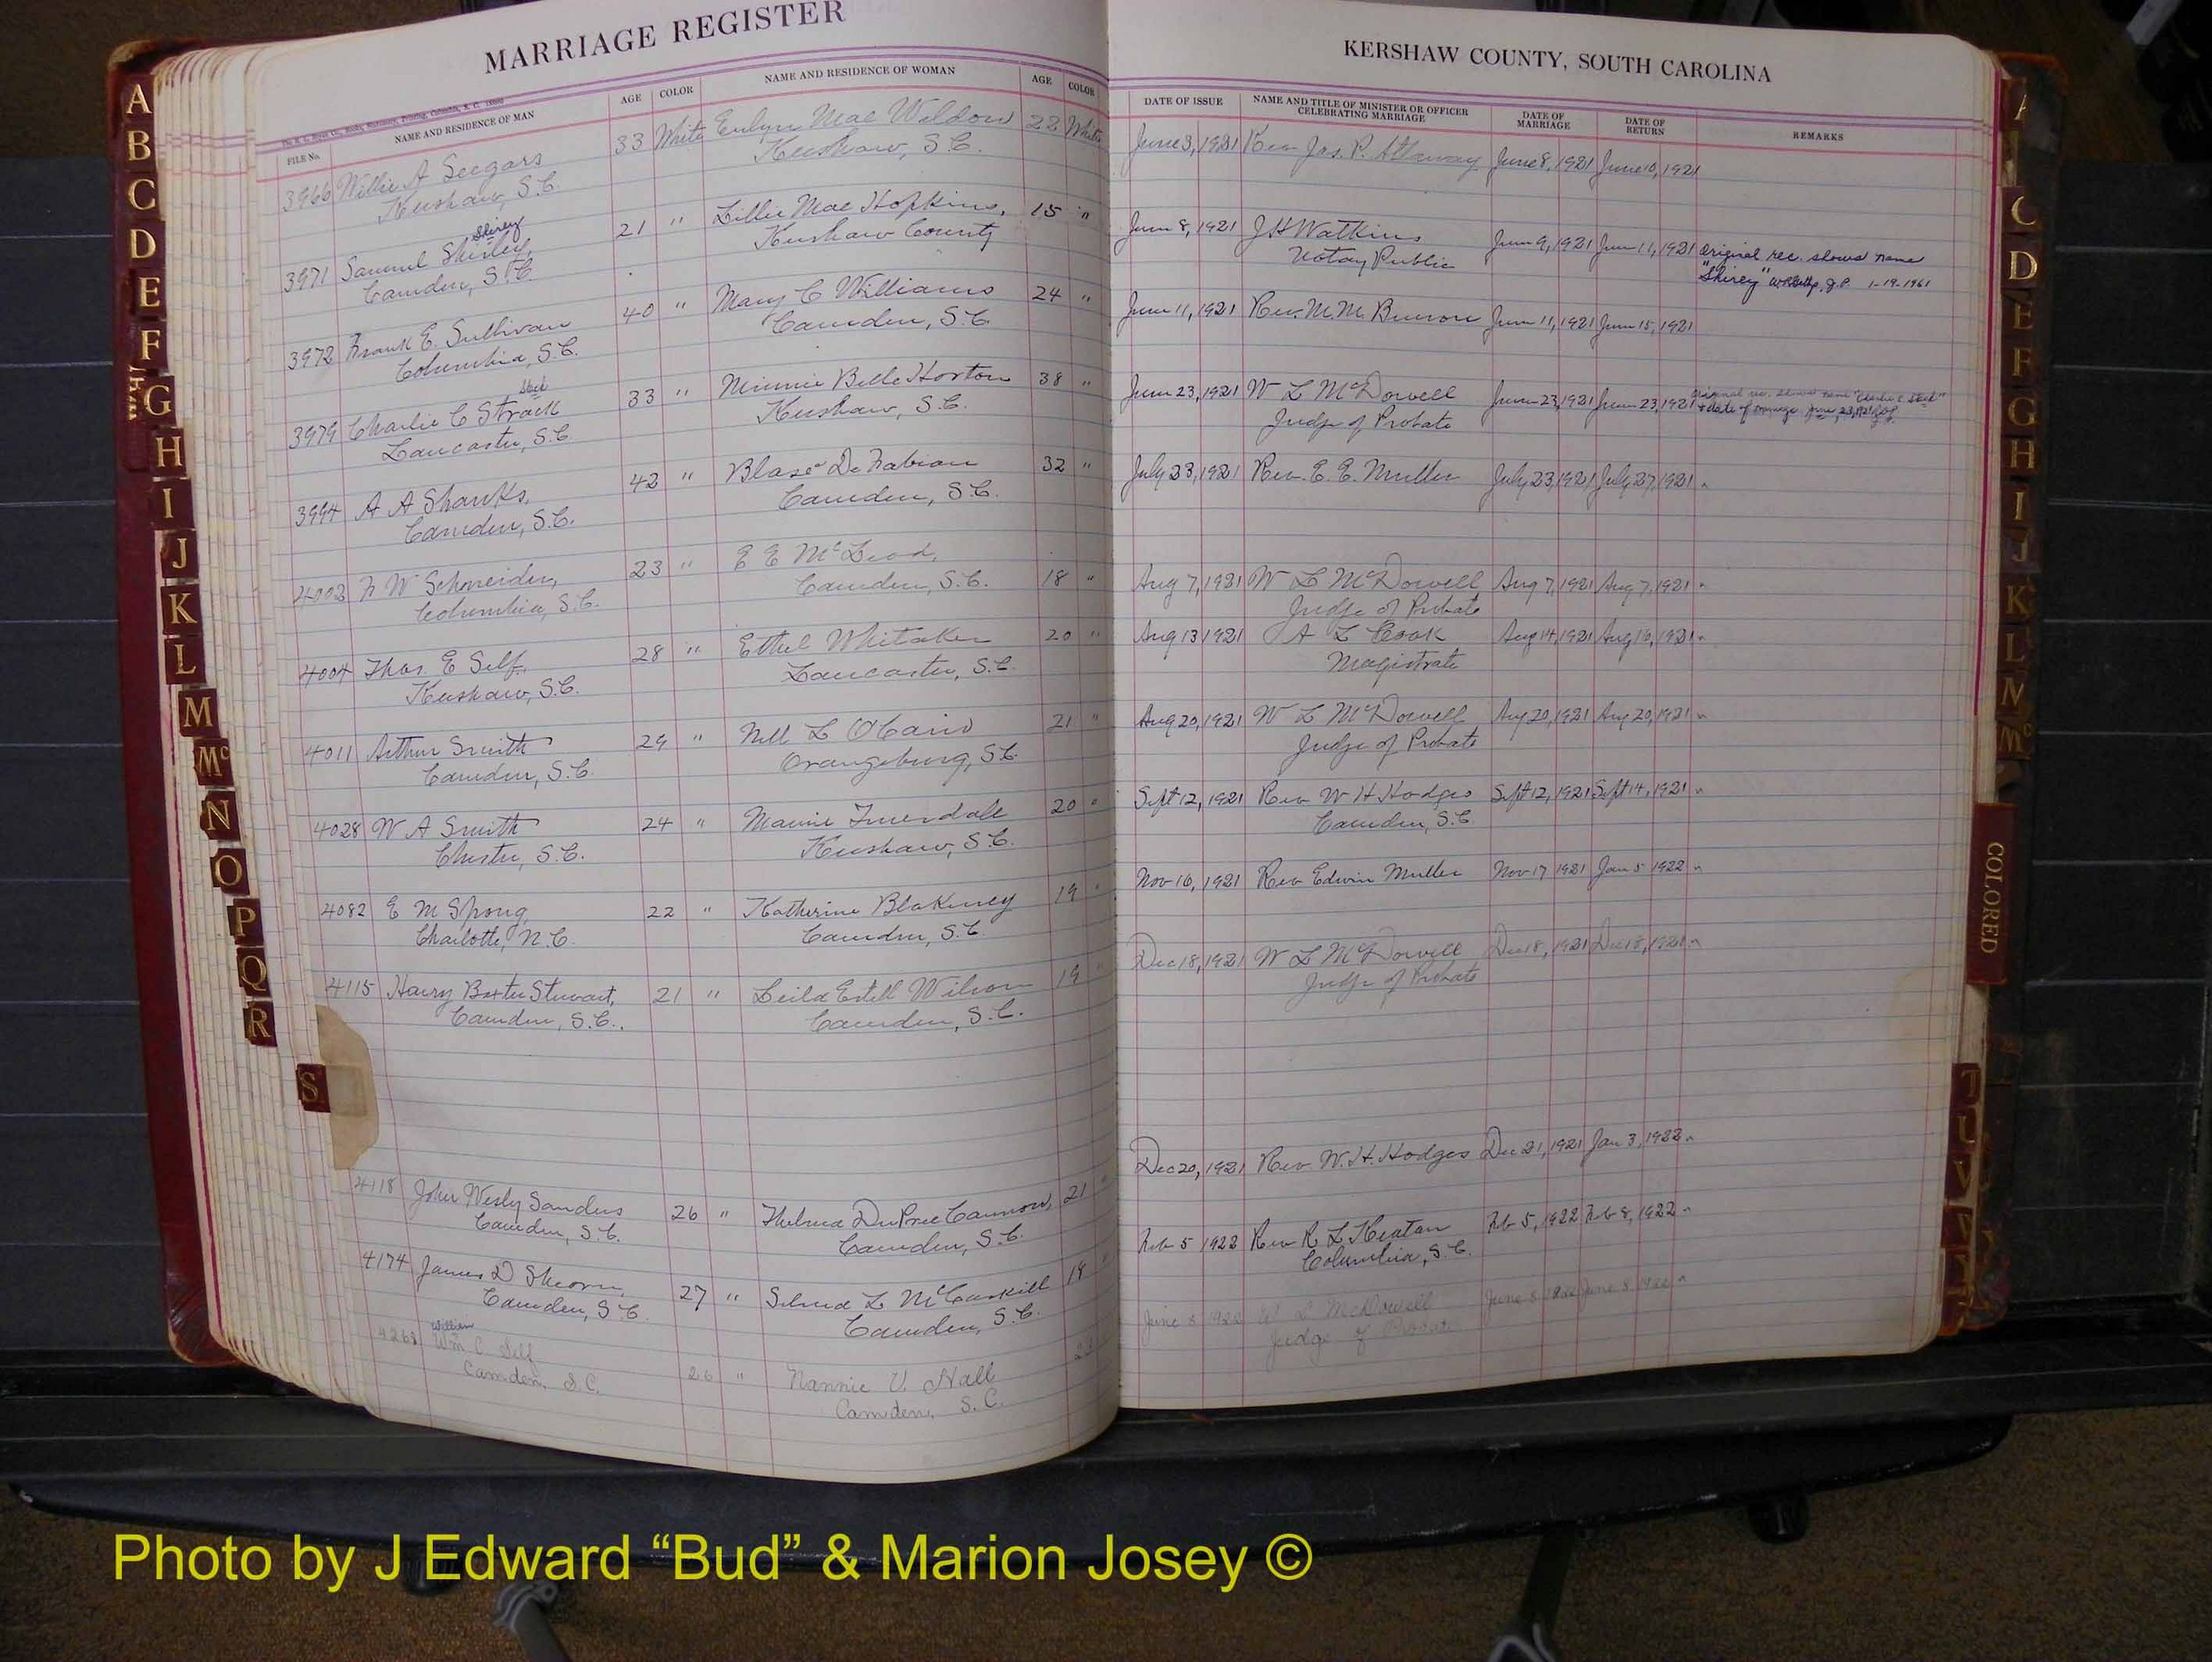 MARRIAGE REGISTER
KERSHAW COUNTY, SOUTH CAROLINA
FILE No. NAME AND RESIDENCE OF MAN AGE COLOR NAME AND RESIDENCE OF WOMAN AGE COLOR
DATE OF ISSUE NAME AND TITLE OF MINISTER OR OFFICER CELEBRATING MARRIAGE DATE OF MARRIAGE DATE OF RETURN REMARKS
3966 Willie A Seegars 33 White Evelyn Mae Weldon 22 White June 3, 1921 Rev Jas. P. Attaway June 8, 1921 June 10, 1921
Kershaw, S.C. Kershaw, S.C.
Shirey
3971 Samuel Shirley, 21 " Lillie Mae Hopkins, 15 " June 8, 1921 J H Watkins June 9, 1921 June 11, 1921 Original rec. shows name
Camden, S.C. Kershaw County Notary Public "Shirey" J.P. 1-19-1961
3972 Frank E. Sullivan 40 " Mary C Williams 24 " June 11, 1921 Rev. M. M. June 11, 1921 June 15, 1921
Columbia, S.C. Camden, S.C.
3979 Charlie C Strack 33 " Minnie Belle Horton 38 " June 23, 1921 W L McDowell June 23, 1921 June 23, 1921 Original rec. shows name "Charlie C.
Lancaster, S.C. Kershaw, S.C. Judge of Probate & date of marriage June 23, 1921
3994 A A Shanks, 42 " Blase De Fabian 32 " July 23, 1921 Rev. E. E. Muller July 23, 1921 July 27, 1921 "
Camden, S.C. Camden, S.C.
4002 F W Schneider, 23 " E E McLeod, 18 " Aug 7, 1921 W L McDowell Aug 7, 1921 Aug 7, 1921 "
Columbia, S.C. Camden, S.C. Judge of Probate
4004 Thos. E Self 28 " Ethel Whitaker 20 " Aug 13 1921 A L Cook Aug 14, 1921 Aug 16, 1921 "
Kershaw, S.C. Lancaster, S.C. Magistrate
4011 Arthur Smith 29 " Nell L O'Cain 21 " Aug 20, 1921 W L McDowell Aug 20, 1921 Aug 20, 1921 "
Camden, S.C. Orangeburg, S.C. Judge of Probate
4028 W A Smith 24 " Mamie 20 " Sept 12, 1921 Rev W H Hodges Sept 12, 1921 Sept 14, 1921 "
Chester, S.C. Kershaw, S.C. Camden, S.C.
4082 E M Spong, 22 " Katherine Blakeney 19 " Nov 16, 1921 Rev Edwin Muller Nov 17 1921 Jan 5 1922 "
Charlotte, N.C. Camden, S.C.
4115 Harry Baxter Stewart, 21 " Leila Estell Wilson 19 " Dec 18, 1921 W L McDowell Dec 18, 1921 Dec 18, 1921 "
Camden, S.C. Camden, S.C. Judge of Probate
4118 John Wesly Sanders 26 " Thelma DuPree Cannon, 21 " Dec 20, 1921 Rev W. H. Hodges Dec 21, 1921 Jan 3, 1922 "
Camden, S.C. Camden, S.C.
4174 James D Sheorn, 27 " Selma L McCaskill 18 " Feb 5 1922 Rev R L Keaton Feb 5, 1922 Feb 8, 1922 "
Camden, S.C. Camden, S.C. Columbia, S.C.
William
Wm C. Self 26 " Nannie V. Hall June 8 1922 W L McDowell June 8 1922 June 8 1922 "
Camden, S.C. Camden, S.C. Judge of Probate
A
B
C
D
E
F
G
H
I
J
K
L
M
Mc
N
O
P
Q
R
S
C
D
E
F
G
H
I
J
K
L
M
Mc
COLORED
T
U
V
Photo by J Edward “Bud” & Marion Josey ©